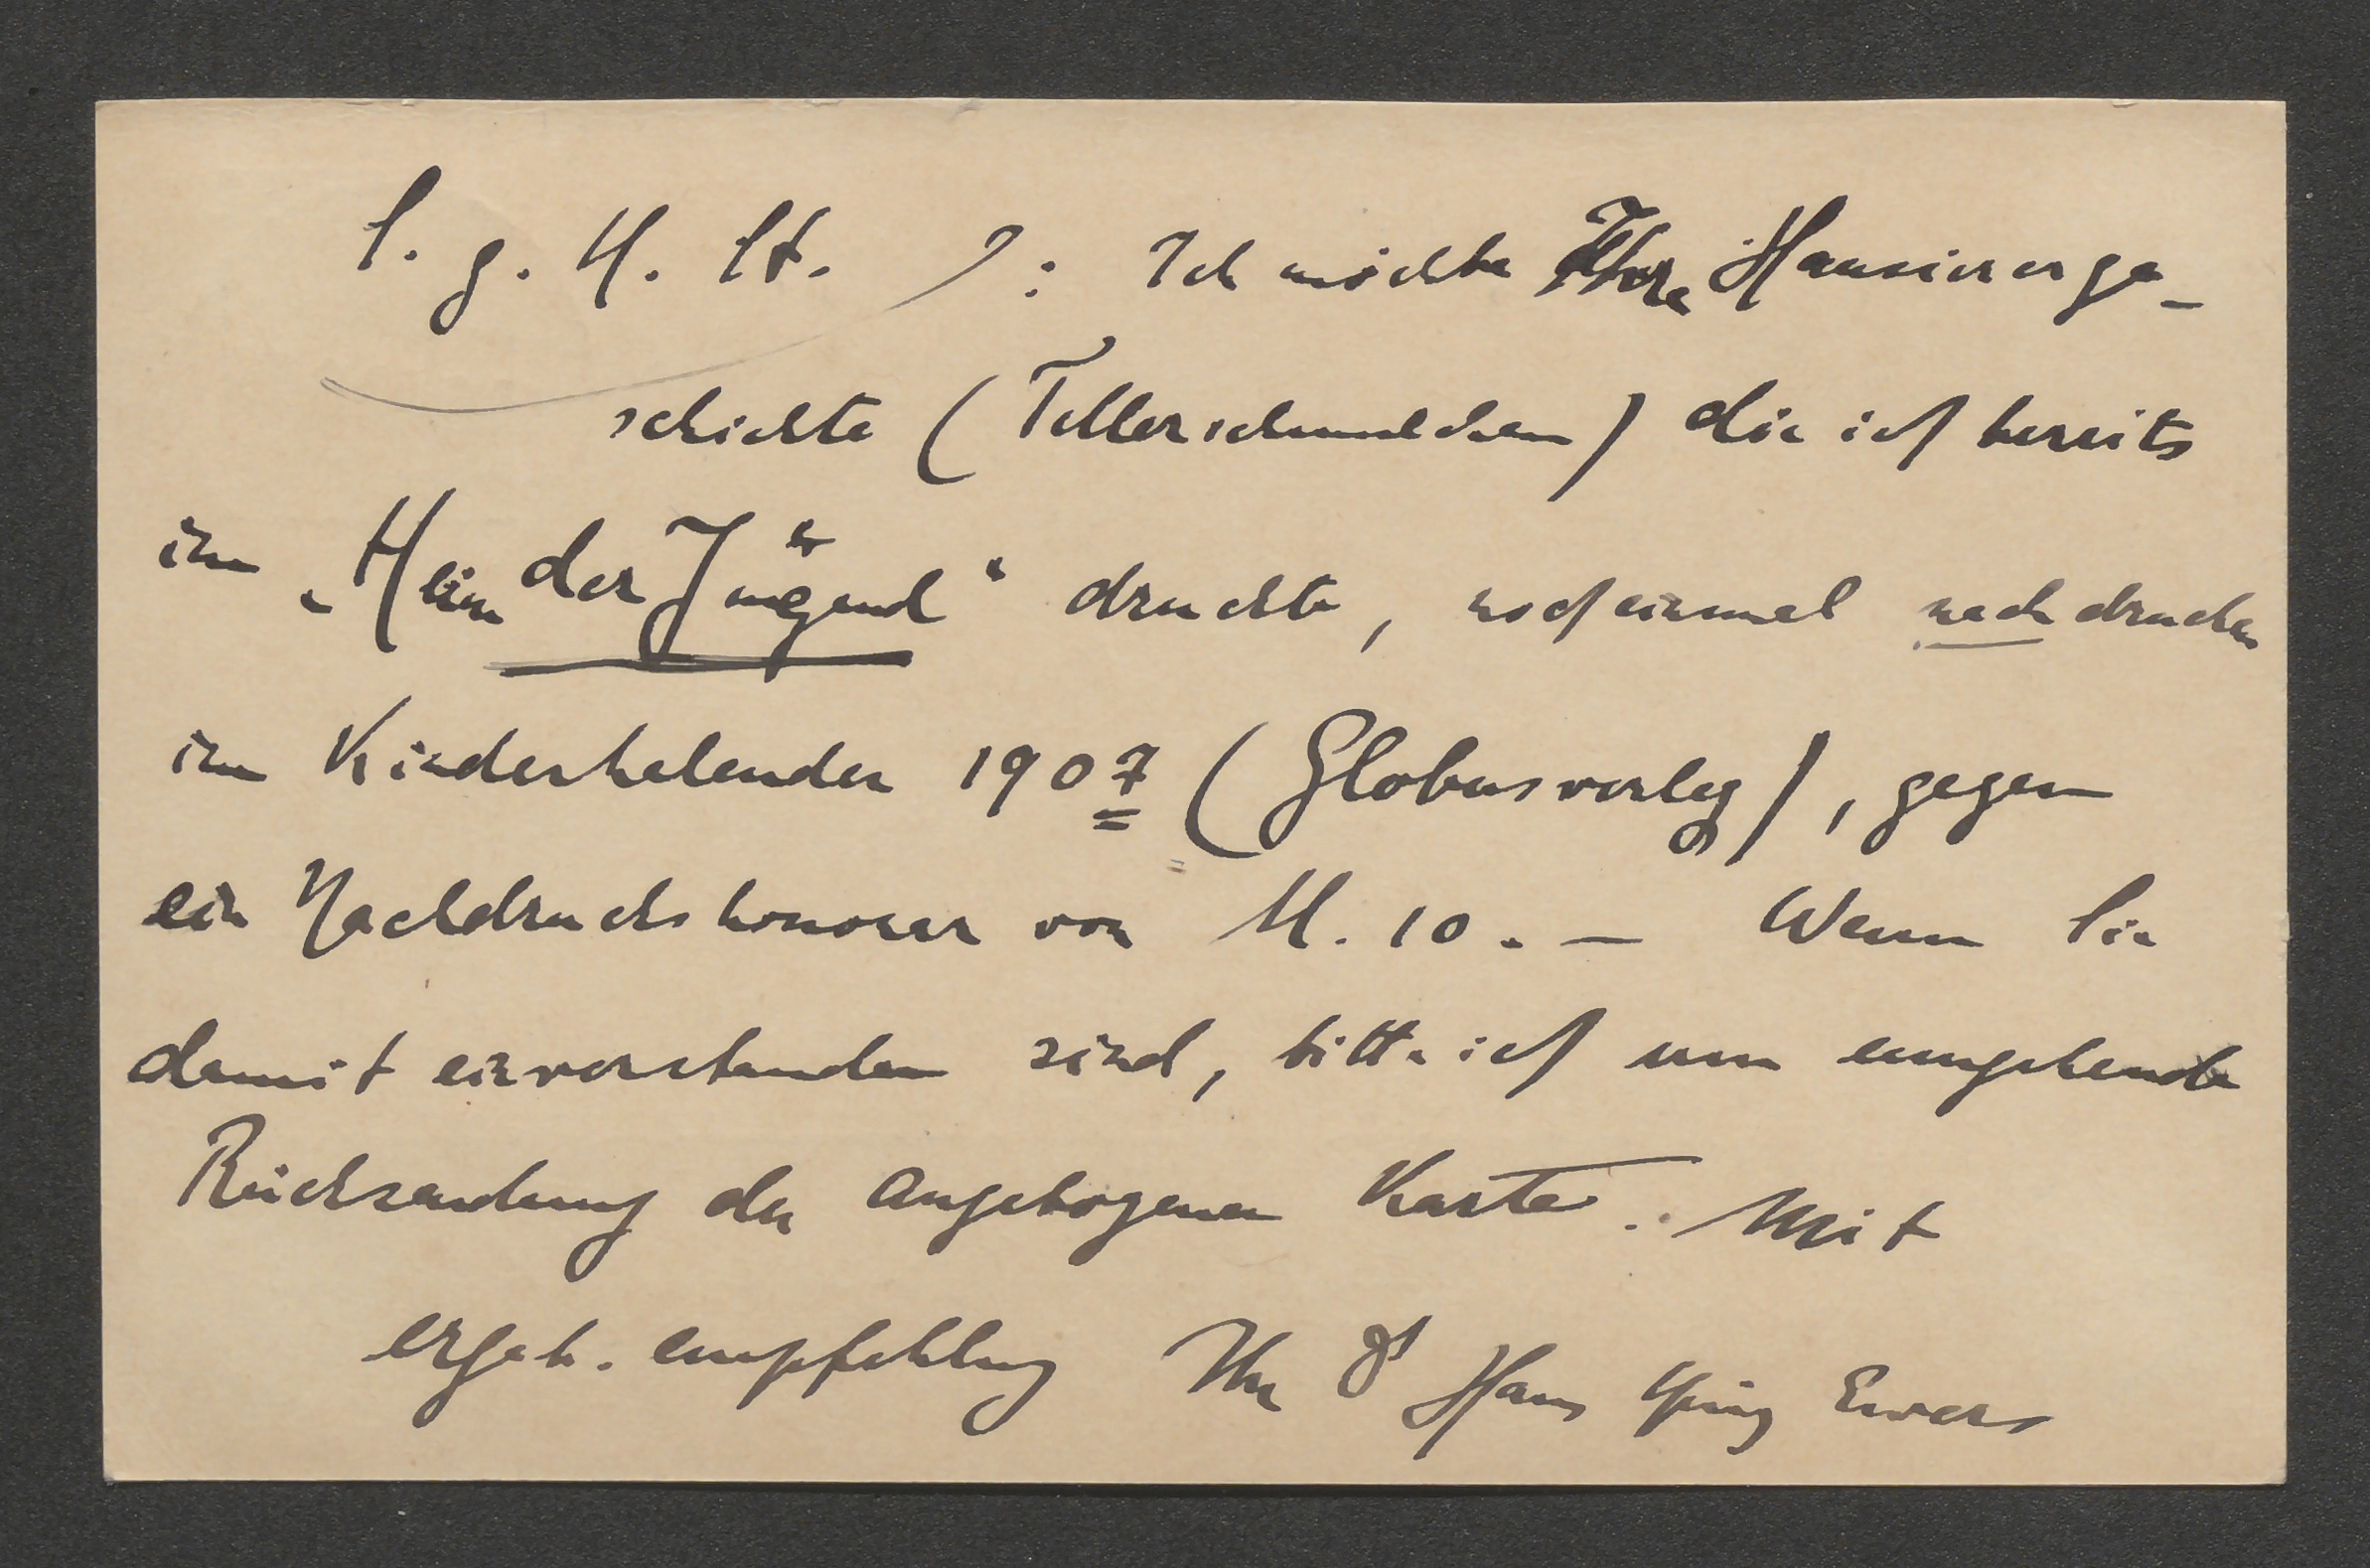 S. g. H. St. : Ich möchte Ihre Hausirerge-
schichte (Tellerschmelchen) die ich bereits
im „Heim der Jugend“ druckte, noch einmal nachdrucken
im Kinderkalender 1907 (Globusverlag), gegen
ein Nachdruckshonorar von M. 10. — Wenn Sie
damit einverstanden sind, bitte ich um umgehende
Rücksendung der angebogenen Karte. Mit
ergeb. empfehlung Ihr Hanns Heinz Ewers